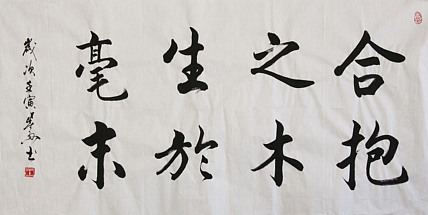 合抱
之木
生於
毫末
歲次壬寅